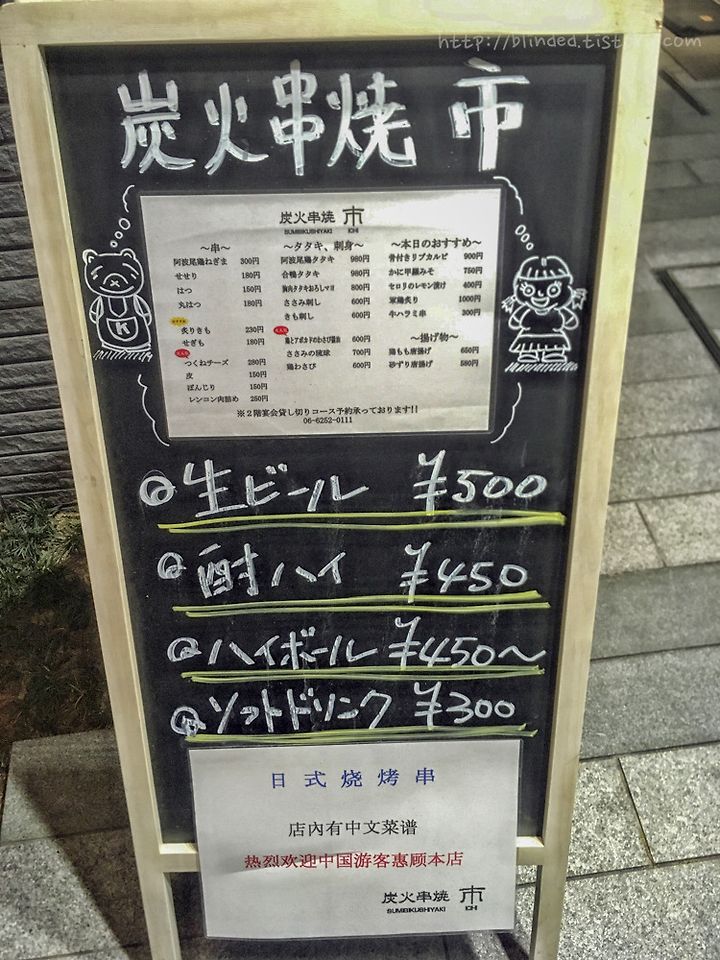 http://blinded.tistory.com
炭火串焼 市
炭火串焼 市
SUMIBIKUSHIYAKI ICHI
～串～
阿波尾鶏ねぎま 300円
せせり 180円
はつ 150円
丸はつ 180円
炙りきも 230円
せぎも 180円
つくねチーズ 280円
皮 150円
ぼんじり 150円
レンコン肉詰め 250円
～タタキ、刺身～
阿波尾鶏タタキ 980円
合鴨タタキ 980円
胸肉タタキおろしマヨ 800円
ささみ刺し 600円
きも刺し 600円
鶏とアボカドのわさび醤油 600円
ささみの琉球 700円
鶏わさび 600円
～本日のおすすめ～
骨付きリブカルビ 900円
かに甲羅みそ 750円
セロリのレモン漬け 400円
軍鶏炙り 1000円
牛ハラミ串 300円
～揚げ物～
鶏もも唐揚げ 650円
砂ずり唐揚げ 580円
※２階宴会貸し切りコース予約承っております!!
06-6252-0111
K
生ビール ¥500
酎ハイ ¥450
ハイボール ¥450～
ソフトドリンク ¥300
日式烧烤串
店内有中文菜谱
热烈欢迎中国游客惠顾本店
炭火串焼 市
SUMIBIKUSHIYAKI ICHI